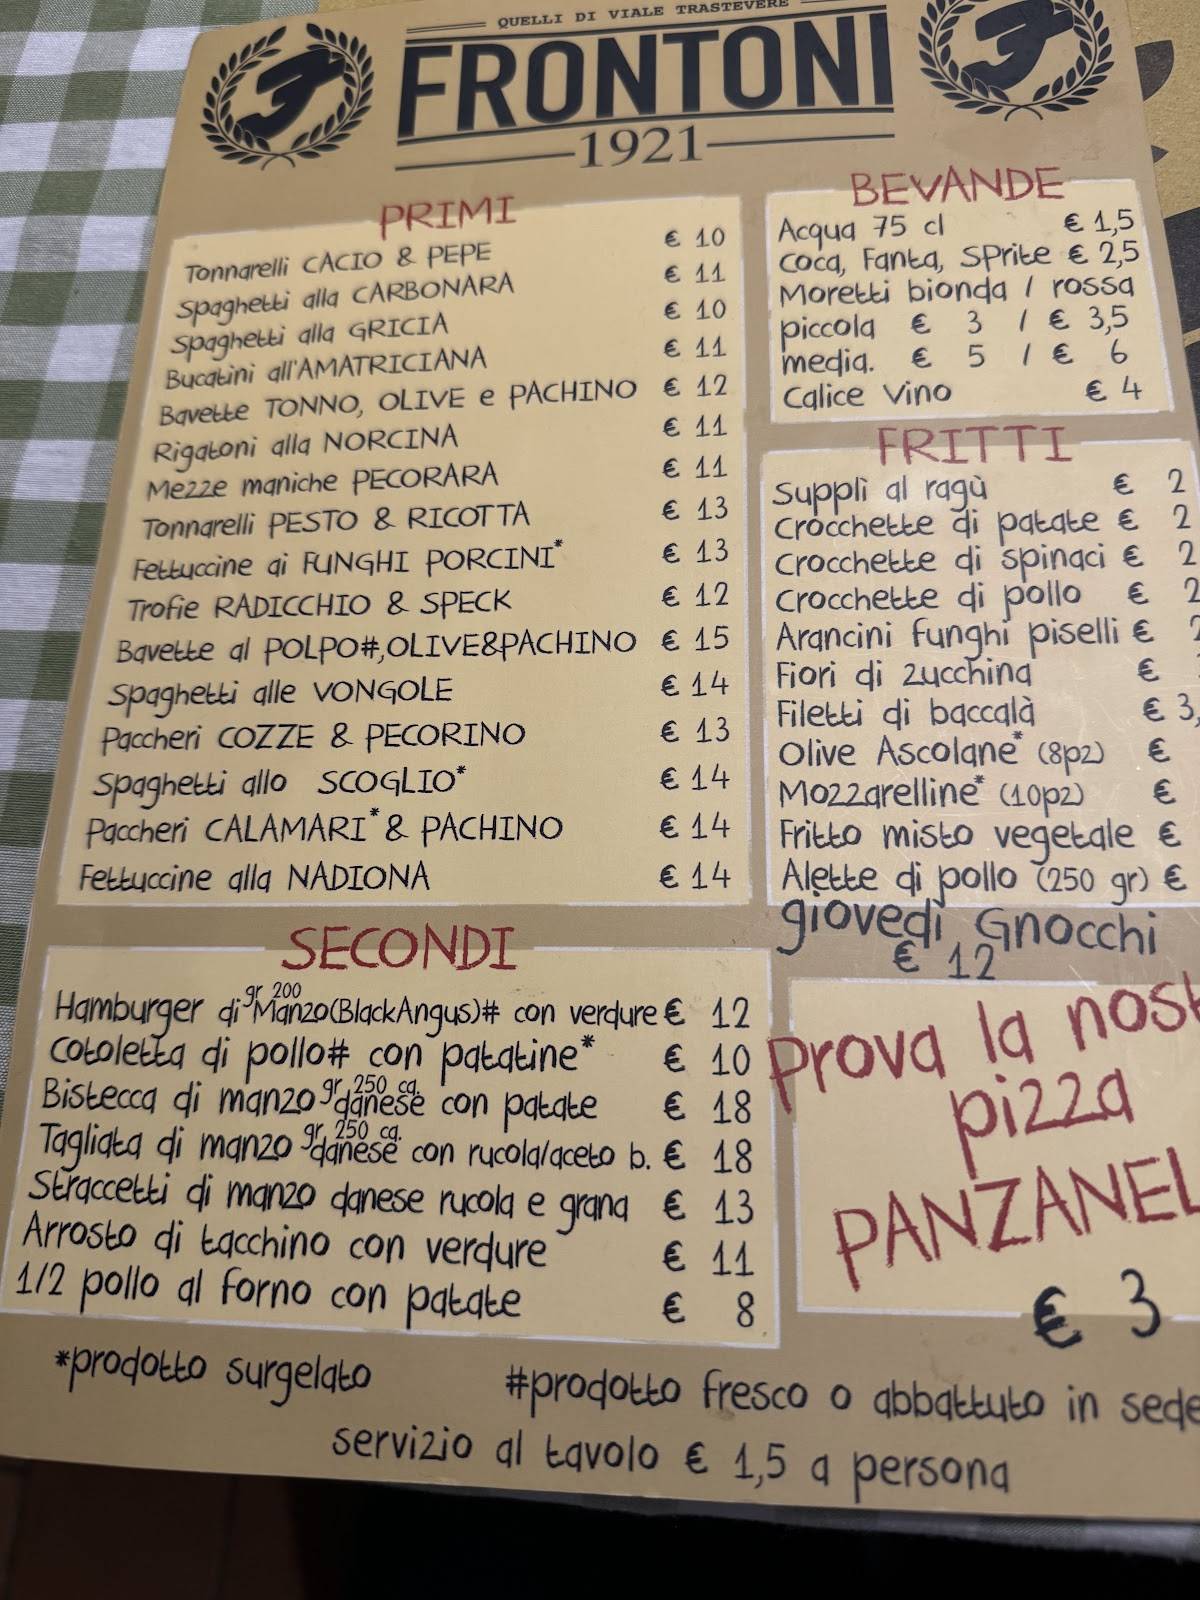 QUELLI DI VIALE TRASTEVERE
FRONTONI
1921
PRIMI
Tonnarelli CACIO & PEPE € 10
Spaghetti alla CARBONARA € 11
Spaghetti alla GRICIA € 10
Bucatini all'AMATRICIANA € 11
Bavette TONNO, OLIVE e PACHINO € 12
Rigatoni alla NORCINA € 11
Mezze maniche PECORARA € 11
Tonnarelli PESTO & RICOTTA € 13
Fettuccine ai FUNGHI PORCINI* € 13
Trofie RADICCHIO & SPECK € 12
Bavette al POLPO#,OLIVE&PACHINO € 15
Spaghetti alle VONGOLE € 14
Paccheri COZZE & PECORINO € 13
Spaghetti allo SCOGLIO* € 14
Paccheri CALAMARI* & PACHINO € 14
Fettuccine alla NADIONA € 14
SECONDI
Hamburger di gr 200 Manzo(BlackAngus)# con verdure € 12
Cotoletta di pollo# con patatine* € 10
Bistecca di manzo gr. 250 ca. danese con patate € 18
Tagliata di manzo gr. 250 ca. danese con rucola/aceto b. € 18
Straccetti di manzo danese rucola e grana € 13
Arrosto di tacchino con verdure € 11
1/2 pollo al forno con patate € 8
BEVANDE
Acqua 75 cl € 1,5
Coca, Fanta, SPrite € 2,5
Moretti bionda / rossa
piccola € 3 / € 3,5
media. € 5 / € 6
Calice Vino € 4
FRITTI
Supplì al ragù € 2
Crocchette di patate € 2
Crocchette di spinaci € 2
Crocchette di pollo € 2
Arancini funghi piselli €
Fiori di zucchina €
Filetti di baccalà € 3,
Olive Ascolane* (8pz) €
Mozzarelline* (10pz) €
Fritto misto vegetale €
Alette di pollo (250 gr) €
giovedì Gnocchi
€ 12
Prova la nost
pizza
PANZANEL
€ 3
*prodotto surgelato #prodotto fresco o abbattuto in sede
servizio al tavolo € 1,5 a persona